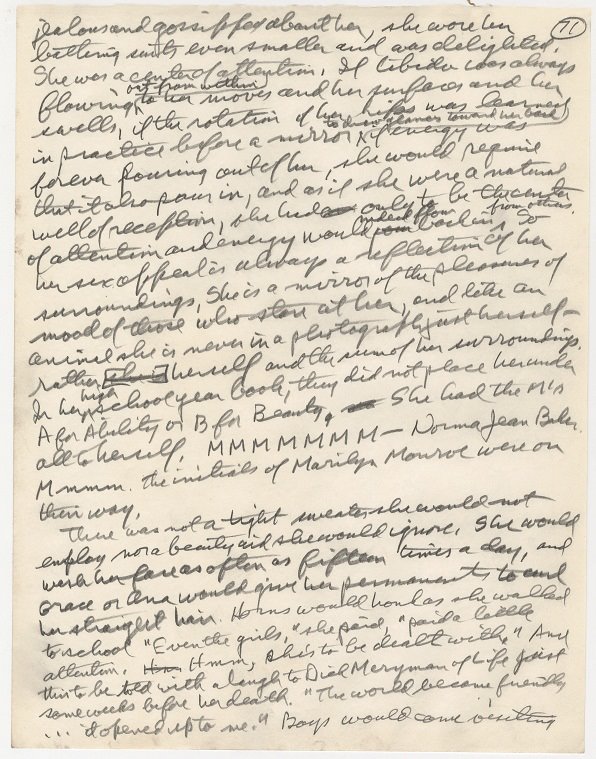 71
jealous and gossipped about her, she wore her
bathing suits even smaller and was delighted.
She was a center of attention. If libido was always
out from within
flowing to her moves and her surfaces and her
swells, if the rotation of her hips was learned
to draw glances toward her back
in practice before a mirror, if energy was
forever pouring out of her, she would require
that it also pour in, and as if she were a natural
well of reception, she had only to be the center
indeed flow from others.
of attention and energy would back in. So
her sex appeal is always a reflection of her
surroundings. She is a mirror of the pleasures of
mood of those who stare at her, and like an
animal she is never in a photograph just herself—
rather she is herself and the sum of her surroundings.
high
In her school year book, they did not place her under
A for Ability or B for Beauty, She had the M's
all to herself. MMMMMMMM— Norma Jean Baker.
Mmmm. The initials of Marilyn Monroe were on
their way.
There was not a tight sweater she would not
employ nor a beauty aid she would ignore. She would
wash her face as often as fifteen times a day, and
Grace or Ana would give her permanents to curl
her straight hair. Horns would honk as she walked
to school "Even the girls," she said, "paid a little
attention. Hmm, she's to be dealt with." And
this to be told with a laugh to Dick Meryman of Life just
some weeks before her death. "The world became friendly
... it opened up to me." Boys would come visiting